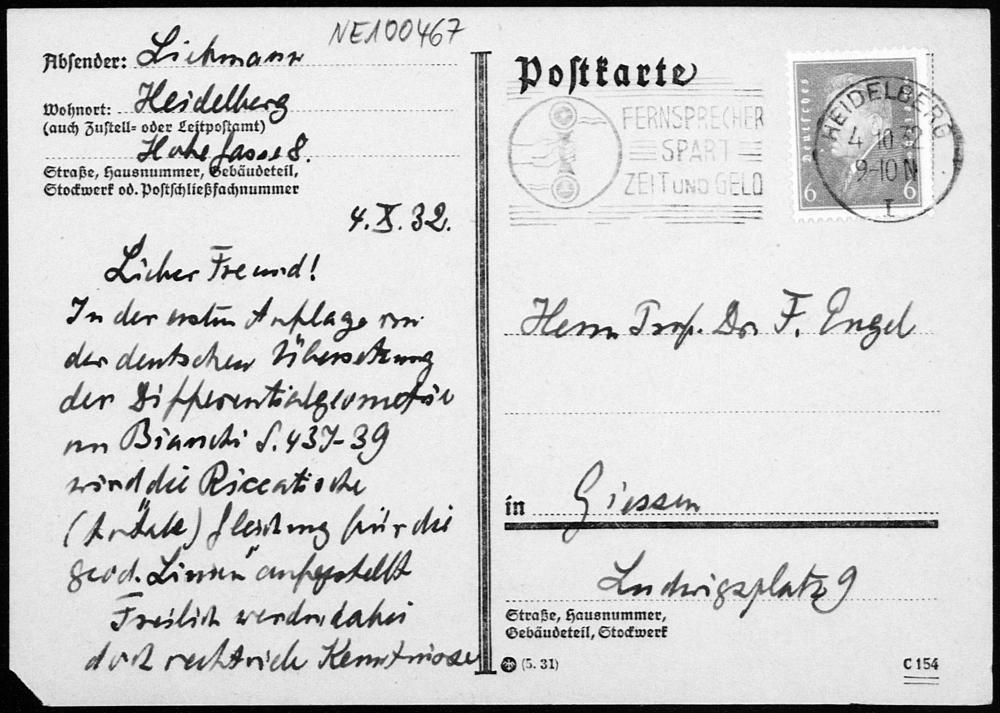 NE100467
Absender: Liebmann
Wohnort: Heidelberg
(auch Zustell- oder Leitpostamt)
Hohe Gasse 8.
Straße, Hausnummer, Gebäudeteil,
Stockwerk od. Postschließfachnummer
4. X. 32.
Lieber Freund!
In der ersten Auflage von
der deutschen Übersetzung
der Differentialgeometrie
von Bianchi S. 437-39
wird die Riccatische
Gleichung für die
geod. Linien" aufgestellt
Freilich werden dabei
doch recht viele Kenntnisse
Postkarte
FERNSPRECHER
SPART
ZEIT UND GELD
Deutsches
6 6
HEIDELBERG
4.10.32
9-10 N
I
Herrn Prof. Dr. F. Engel
in Giessen
Ludwigsplatz 9
Straße, Hausnummer,
Gebäudeteil, Stockwerk
(5. 31)
C 154